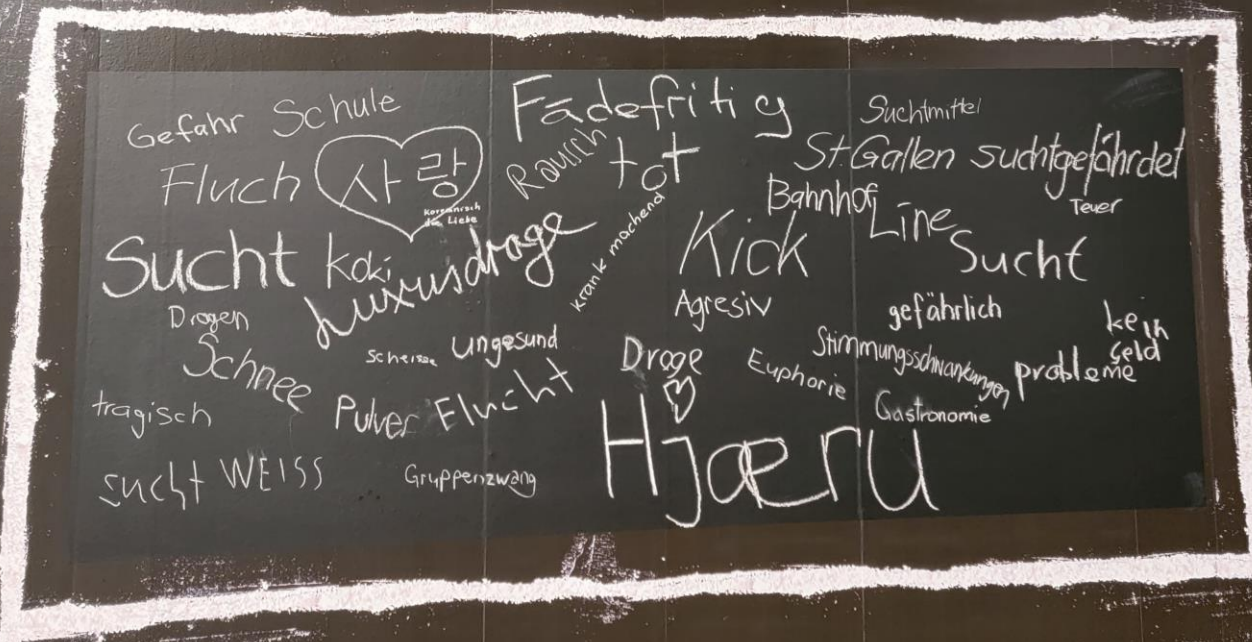 Gefahr Schule
Fadefritig
Suchtmittel
Fluch
사랑
Koreanisch
die Liebe
Rausch
tot
St.Gallen suchtgefährdet
Bahnhof
Teuer
Line
Sucht koki
Luxusdroge
krank machend
Kick
Sucht
Drogen
Agresiv
gefährlich
kein
geld
Schnee
Scheisse
ungesund
Droge
Euphorie
Stimmungsschwankungen
probleme
tragisch
Pulver Flucht
Gastronomie
Hjæru
sucht WEISS
Gruppenzwang